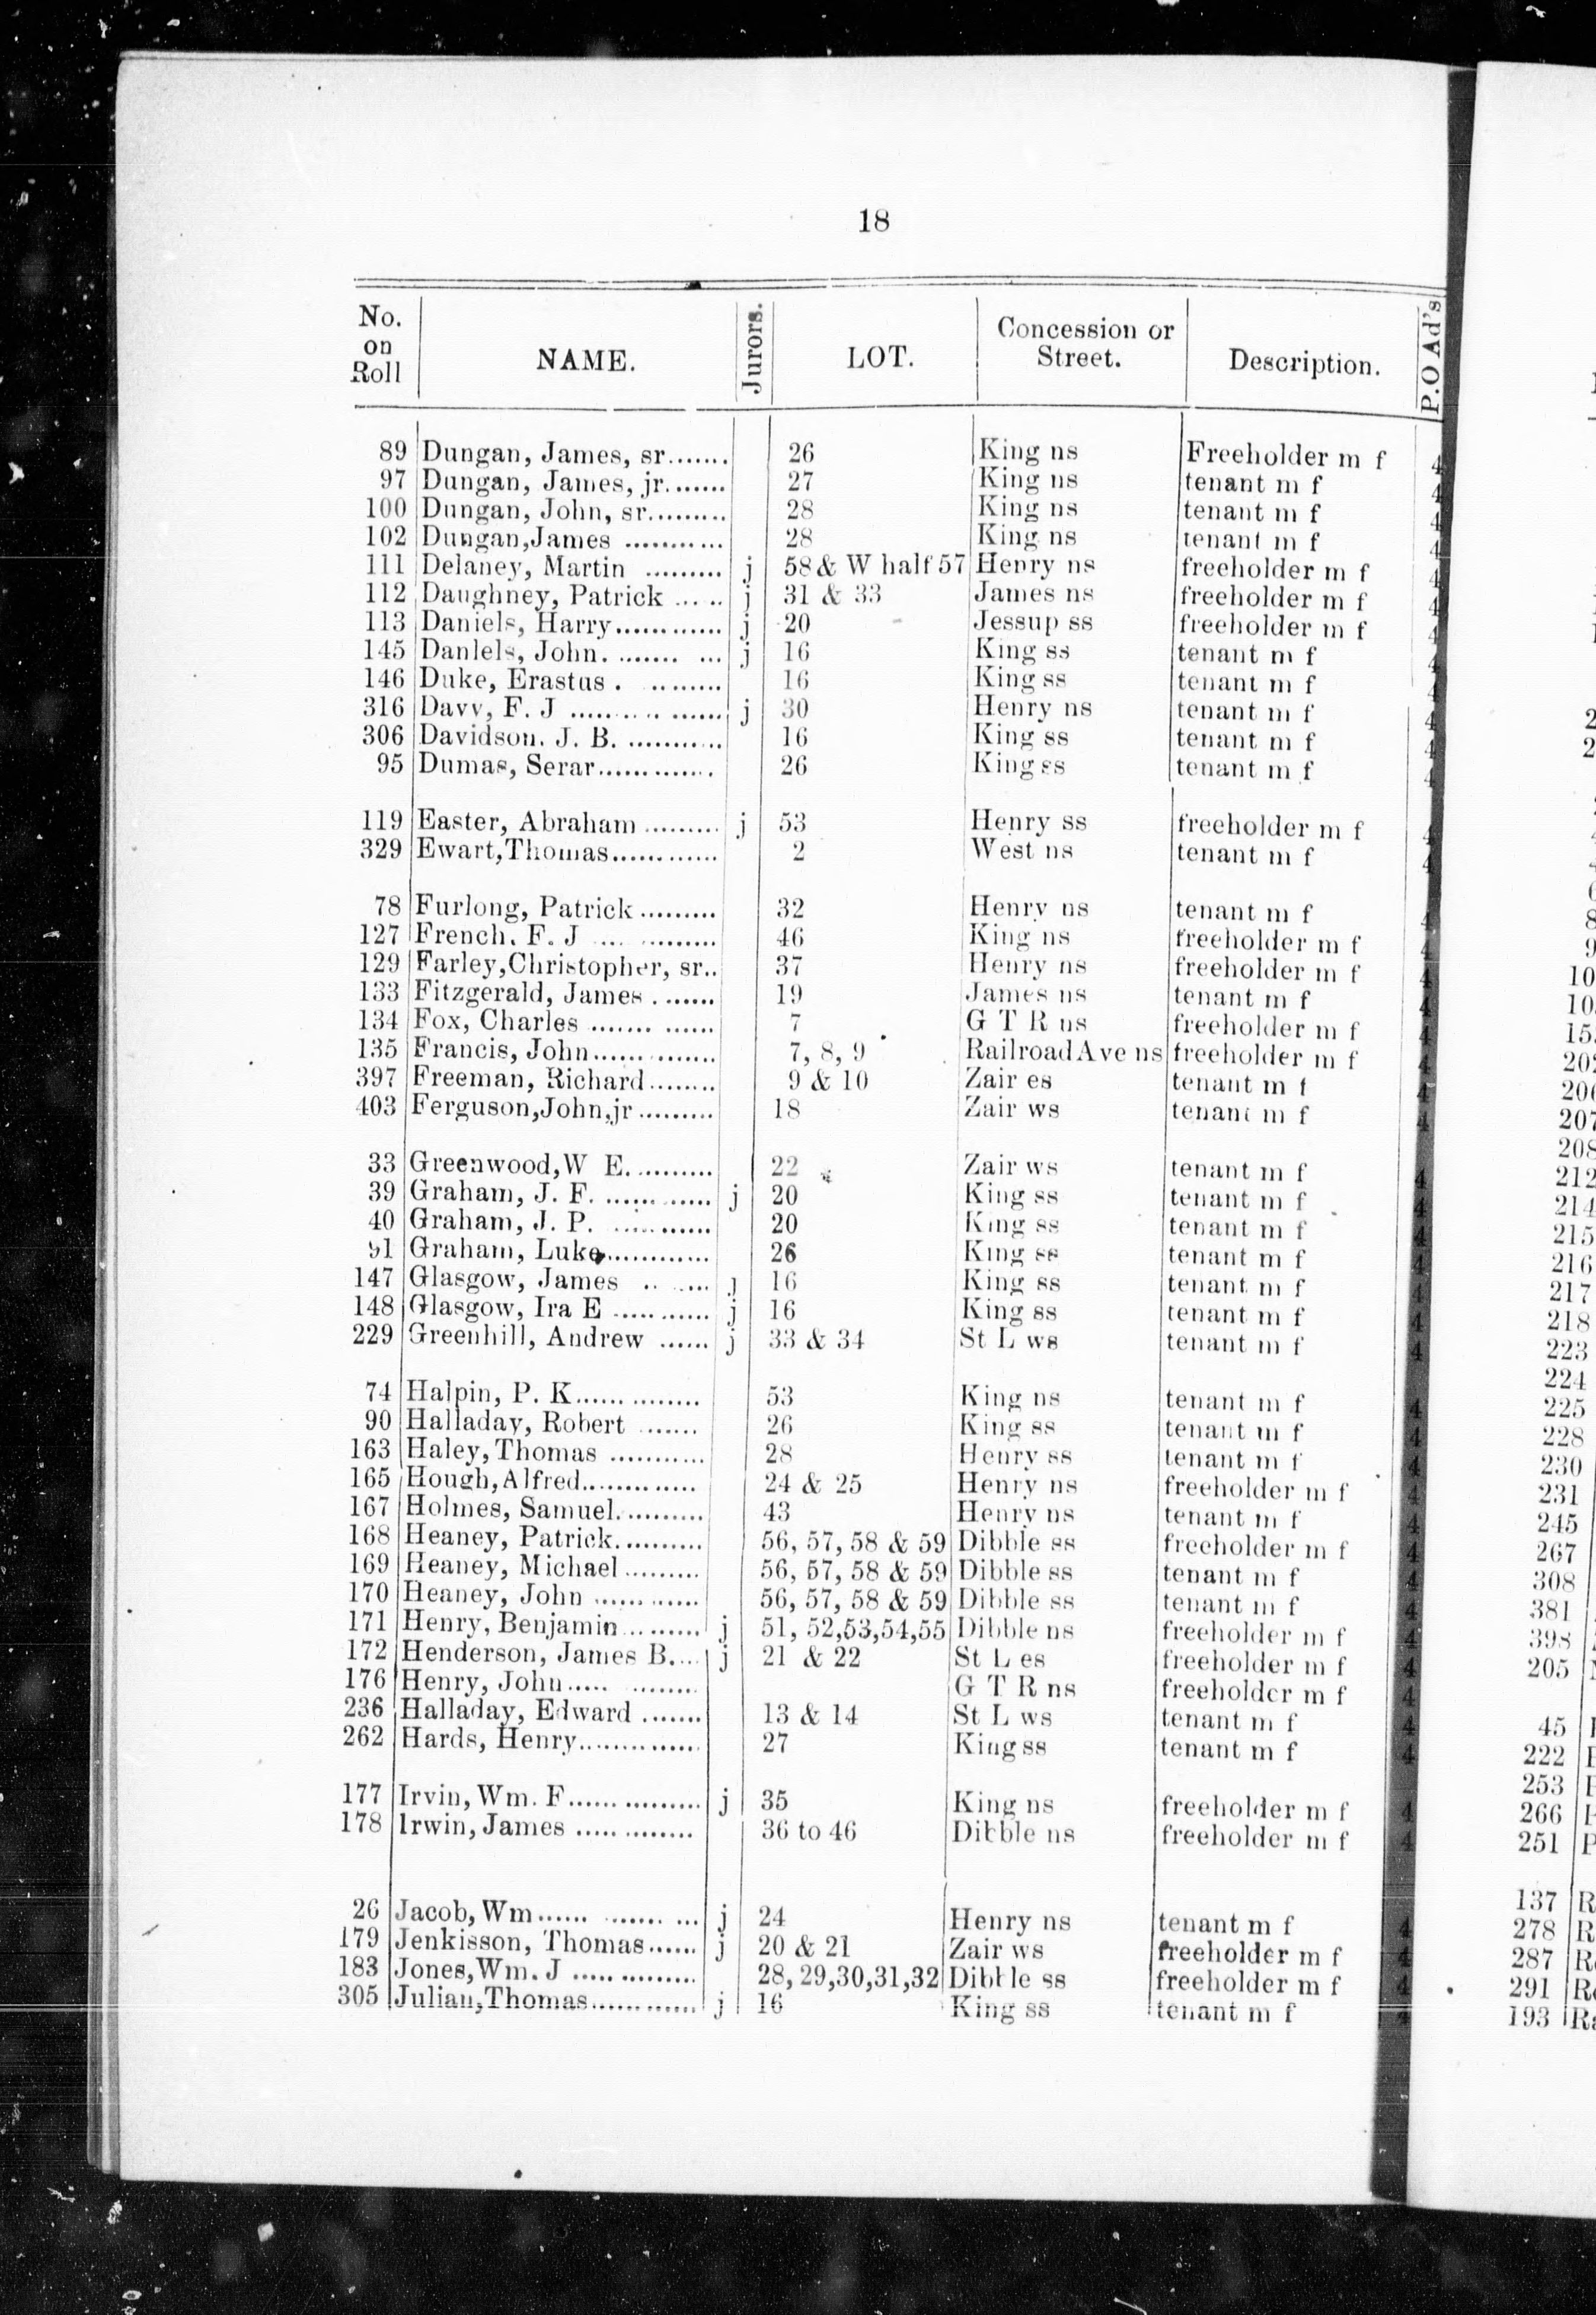 18
No. on Roll NAME. Jurors. LOT. Concession or Street. Description. P.O Ad's
89 Dungan, James, sr....... 26 King ns Freeholder m f 4
97 Dungan, James, jr....... 27 King ns tenant m f 4
100 Dungan, John, sr......... 28 King ns tenant m f 4
102 Dungan,James ............ 28 King ns tenant m f 4
111 Delaney, Martin ......... j 58 & W half 57 Henry ns freeholder m f 4
112 Daughney, Patrick ... .. j 31 & 33 James ns freeholder m f 4
113 Daniels, Harry............ j 20 Jessup ss freeholder m f 4
145 Danlels, John. ........ ... j 16 King ss tenant m f 4
146 Duke, Erastus . ......... 16 King ss tenant m f 4
316 Davv, F. J ................ j 30 Henry ns tenant m f 4
306 Davidson. J. B. ........... 16 King ss tenant m f 4
95 Dumas, Serar............. 26 King ss tenant m f 4
119 Easter, Abraham ......... j 53 Henry ss freeholder m f 4
329 Ewart,Thomas............ 2 West ns tenant m f 4
78 Furlong, Patrick ......... 32 Henry ns tenant m f 4
127 French. F. J .... ......... 46 King ns freeholder m f 4
129 Farley,Christopher, sr.. 37 Henry ns freeholder m f 4
133 Fitzgerald, James . ...... 19 James ns tenant m f 4
134 Fox, Charles ....... ...... 7 G T R ns freeholder m f 4
135 Francis, John............... 7, 8, 9 Railroad Ave ns freeholder m f 4
397 Freeman, Richard........ 9 & 10 Zair es tenant m f 4
403 Ferguson,John,jr ......... 18 Zair ws tenant m f 4
33 Greenwood,W E. ......... 22 Zair ws tenant m f 4
39 Graham, J. F. ............ j 20 King ss tenant m f 4
40 Graham, J. P. ........... 20 King ss tenant m f 4
91 Graham, Luke............ 26 King ss tenant m f 4
147 Glasgow, James .. ..... j 16 King ss tenant m f 4
148 Glasgow, Ira E ........... j 16 King ss tenant m f 4
229 Greenhill, Andrew ...... j 33 & 34 St L ws tenant m f 4
74 Halpin, P. K............... 53 King ns tenant m f 4
90 Halladay, Robert ....... 26 King ss tenant m f 4
163 Haley,Thomas ........... 28 Henry ss tenant m f 4
165 Hough,Alfred.............. 24 & 25 Henry ns freeholder m f 4
167 Holmes, Samuel.......... 43 Henry ns tenant m f 4
168 Heaney, Patrick.......... 56, 57, 58 & 59 Dibble ss freeholder m f 4
169 Heaney, Michael ......... 56, 57, 58 & 59 Dibble ss tenant m f 4
170 Heaney, John ............ 56, 57, 58 & 59 Dibble ss tenant m f 4
171 Henry, Benjamin ......... j 51, 52,53,54,55 Dibble ns freeholder m f 4
172 Henderson, James B.... j 21 & 22 St L es freeholder m f 4
176 Henry, John..... ........ G T R ns freeholder m f 4
236 Halladay, Edward ....... 13 & 14 St L ws tenant m f 4
262 Hards, Henry.............. 27 King ss tenant m f 4
177 Irvin, Wm. F............... j 35 King ns freeholder m f 4
178 Irwin, James ............. 36 to 46 Dibble ns freeholder m f 4
26 Jacob, Wm...... ....... ... j 24 Henry ns tenant m f 4
179 Jenkisson, Thomas...... j 20 & 21 Zair ws freeholder m f 4
183 Jones,Wm. J .............. 28, 29,30,31,32 Dibble ss freeholder m f 4
305 Julian,Thomas............ j 16 King ss tenant m f 4
202
206
207
208
212
214
215
216
217
218
223
224
225
228
230
231
245
267
308
381
398
205
45
222
253
266
251
137 R
278 R
287 R
291 R
193 Ra